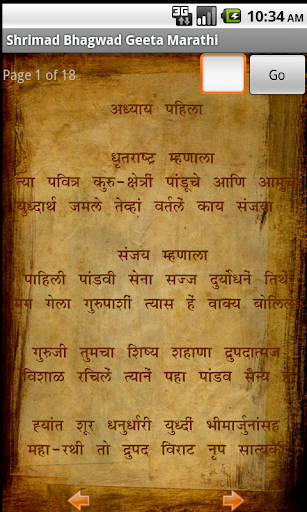 3G 10:34 AM
Shrimad Bhagwad Geeta Marathi
Page 1 of 18
Go
अध्याय पहिला
धृतराष्ट्र म्हणाला
त्या पवित्र कुरु-क्षेत्रीं पांडूचे आणि आमुचे
युध्दार्थ जमले तेव्हां वर्तलें काय संजया
संजय म्हणाला
पाहिली पांडवी सेना सज्ज दुर्योधनें तिथें
मग गेला गुरुपाशीं त्यास हें वाक्य बोलिला
गुरुजी तुमचा शिष्य शहाणा द्रुपदात्मज
विशाळ रचिलें त्यानें पहा पांडव सैन्य हें
ह्यांत शूर धनुर्धारी युध्दीं भीमार्जुनांसह
महा-रथी तो द्रुपद विराट नृप सात्यकि